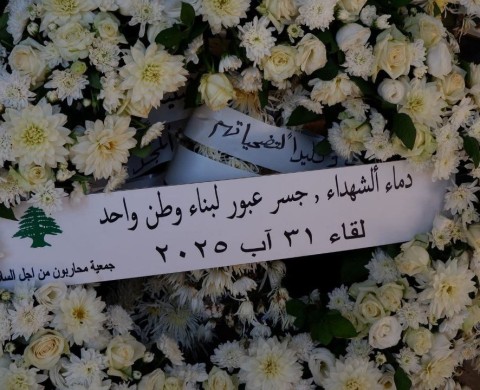 تخليداً لتضحياتهم
دماء ألشهداء , جسر عبور لبناء وطن واحد
لقاء ٣١ آب ٢٠٢٥
جمعية محاربون من اجل السلا